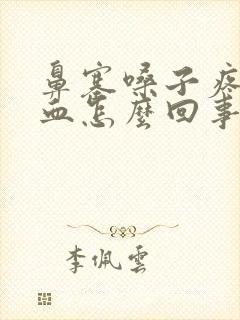 鼻塞嗓子疼
血怎麼回事
李佩雲